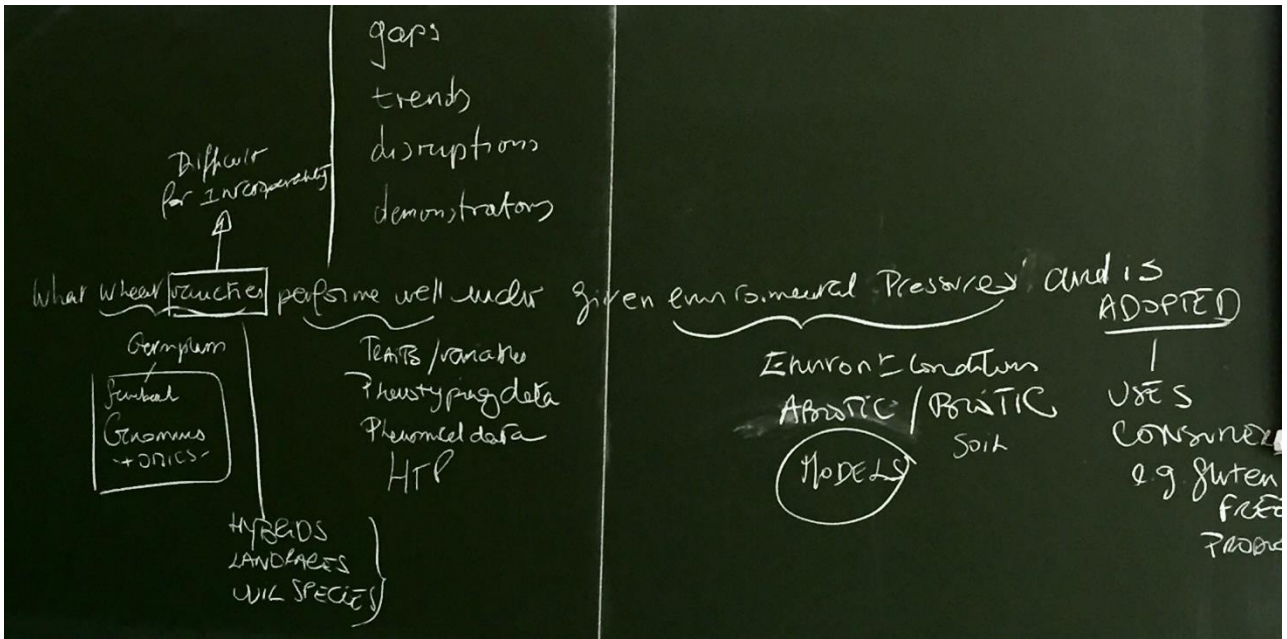 gaps
trends
disruptions
demonstrators
Difficult
for Interoperability
What wheat varieties performe well under given environmental Pressures and is
ADOPTED
Germplasm
Genomics
+ OMICS -
HYBRIDS
LANDRACES
WILD SPECIES
TRAITS / variables
Phenotyping data
Phenomical data
HTP
Environt conditions
ABIOTIC / BIOTIC
SOIL
MODELS
USES
CONSUMER
e.g gluten
FREE
PRODU